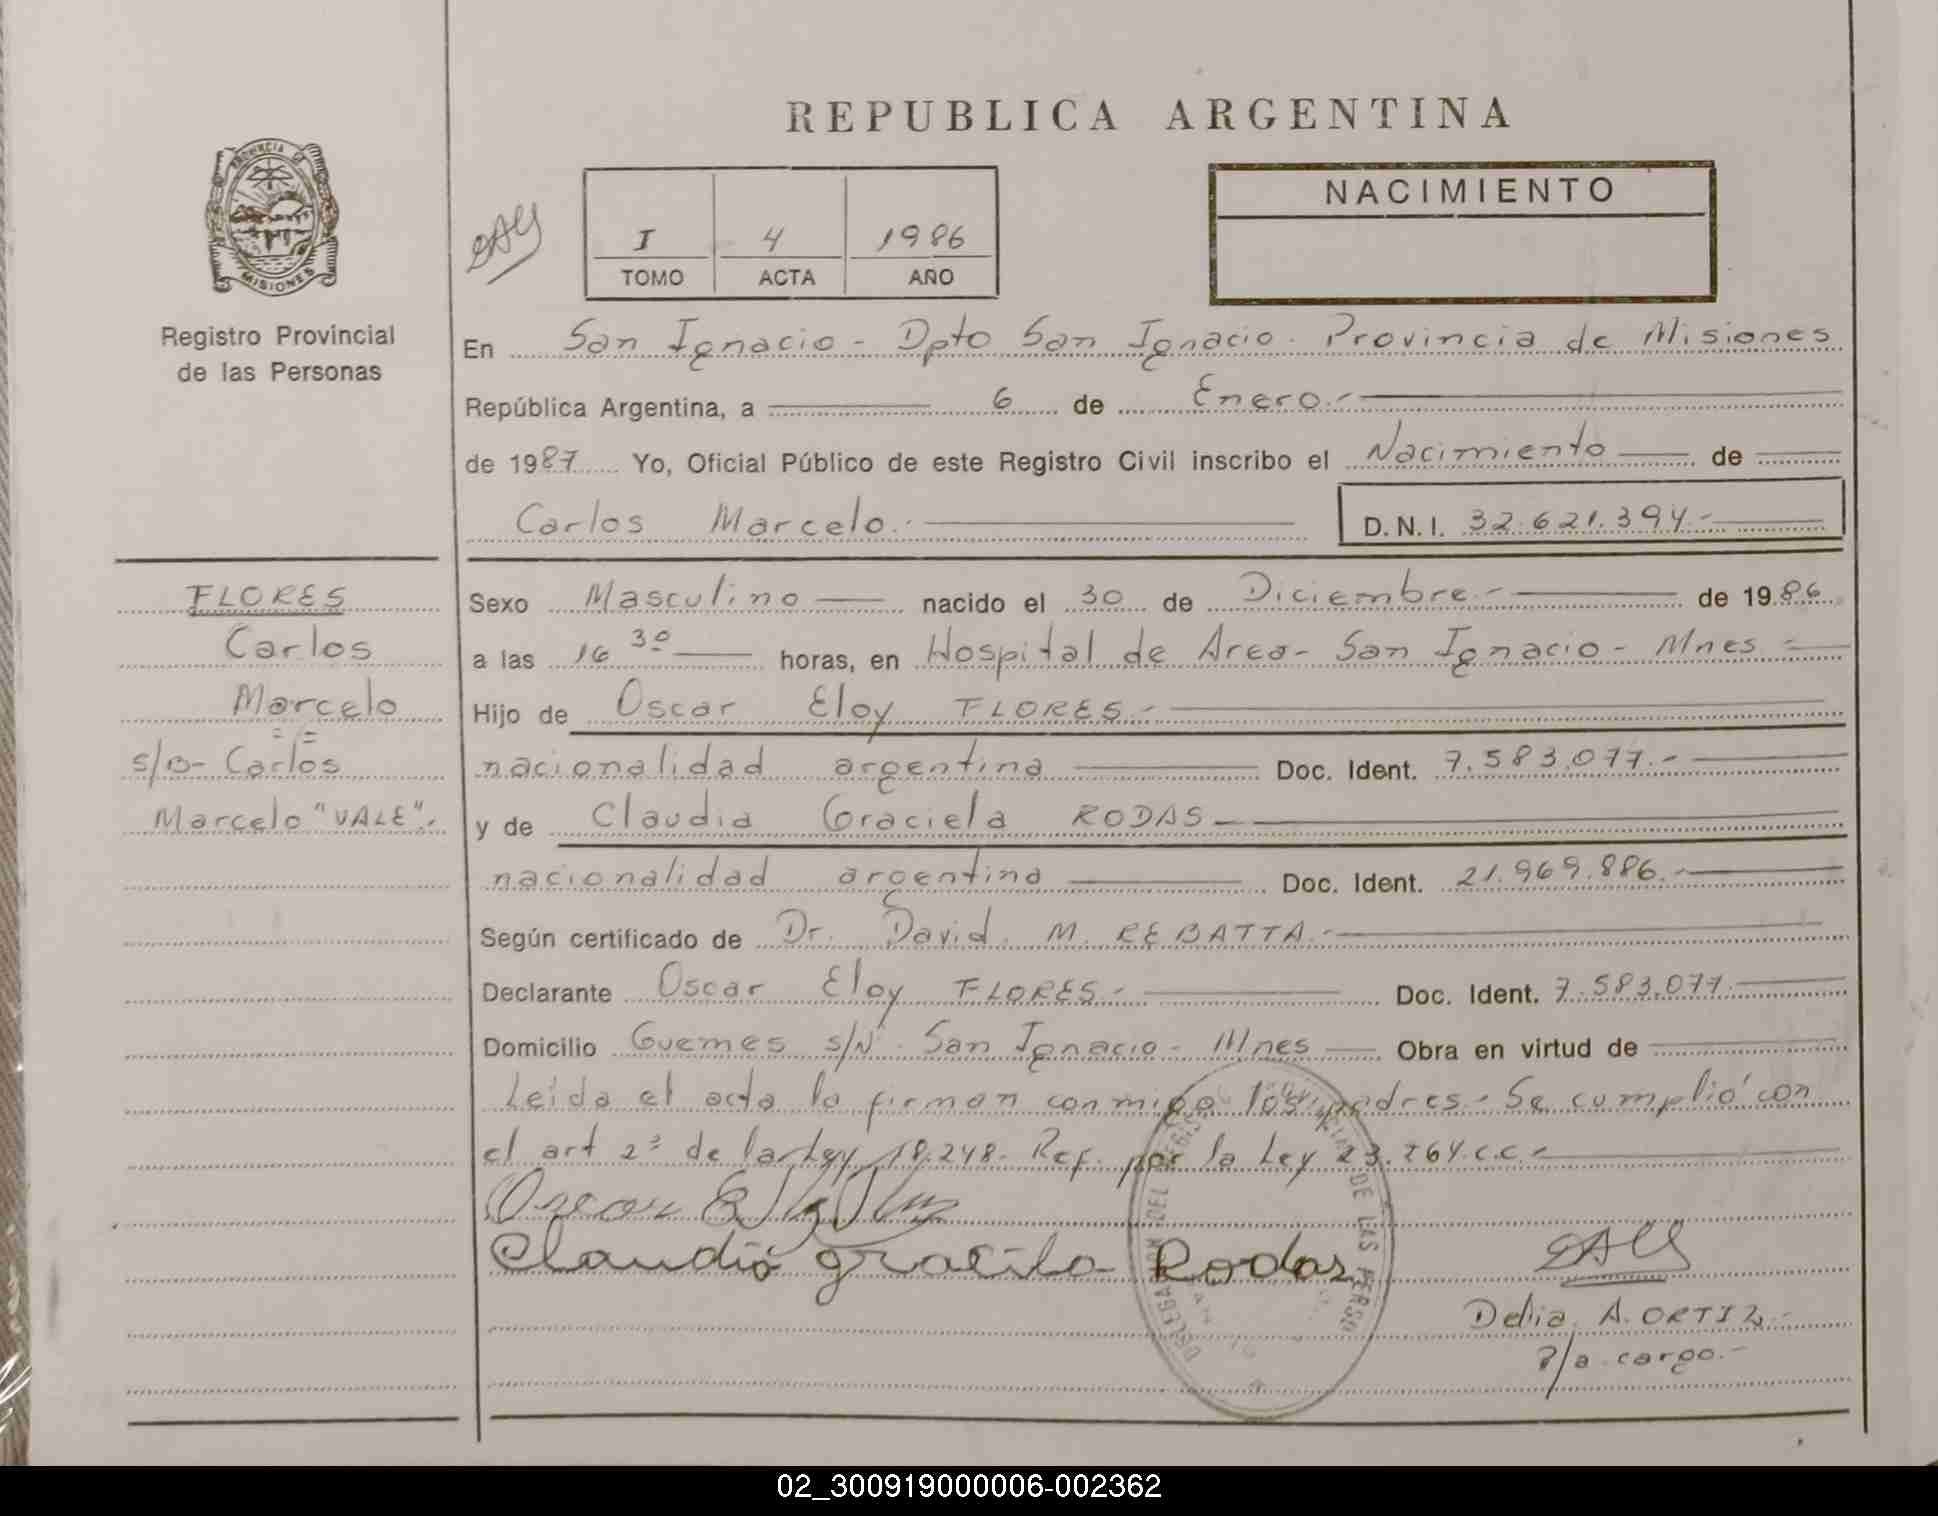 REPUBLICA ARGENTINA
PROVINCIA DE
MISIONES
Registro Provincial
de las Personas
I 4 1986
TOMO ACTA AÑO
NACIMIENTO
En San Ignacio - Dpto San Ignacio. Provincia de Misiones
República Argentina, a 6 de Enero.-
de 1987 Yo, Oficial Público de este Registro Civil inscribo el Nacimiento de
Carlos Marcelo.- D.N.I. 32.621.394.-
FLORES
Carlos
Marcelo
s/o- Carlos
Marcelo "VALE".
Sexo Masculino nacido el 30 de Diciembre.- de 1986
a las 16 30 horas, en Hospital de Area- San Ignacio - Mnes -
Hijo de Oscar Eloy FLORES.-
nacionalidad argentina Doc. Ident. 7.583.077.-
y de Claudia Graciela RODAS-
nacionalidad argentina Doc. Ident. 21.969.886.-
Según certificado de Dr. David M. REBATTA.-
Declarante Oscar Eloy FLORES.- Doc. Ident. 7.583.077.-
Domicilio Guemes s/N. San Ignacio - Mnes Obra en virtud de
Leída el acta la firman conmigo los padres.- Se cumplió con
el art 2º de la Ley 18.248. Ref. por la Ley 23.264.C.C.-
Claudia gracila Rodas
Delia A. ORTIZ.-
a cargo.-
DELEGACION DEL REGIS DE LAS PERSO
02_300919000006-002362